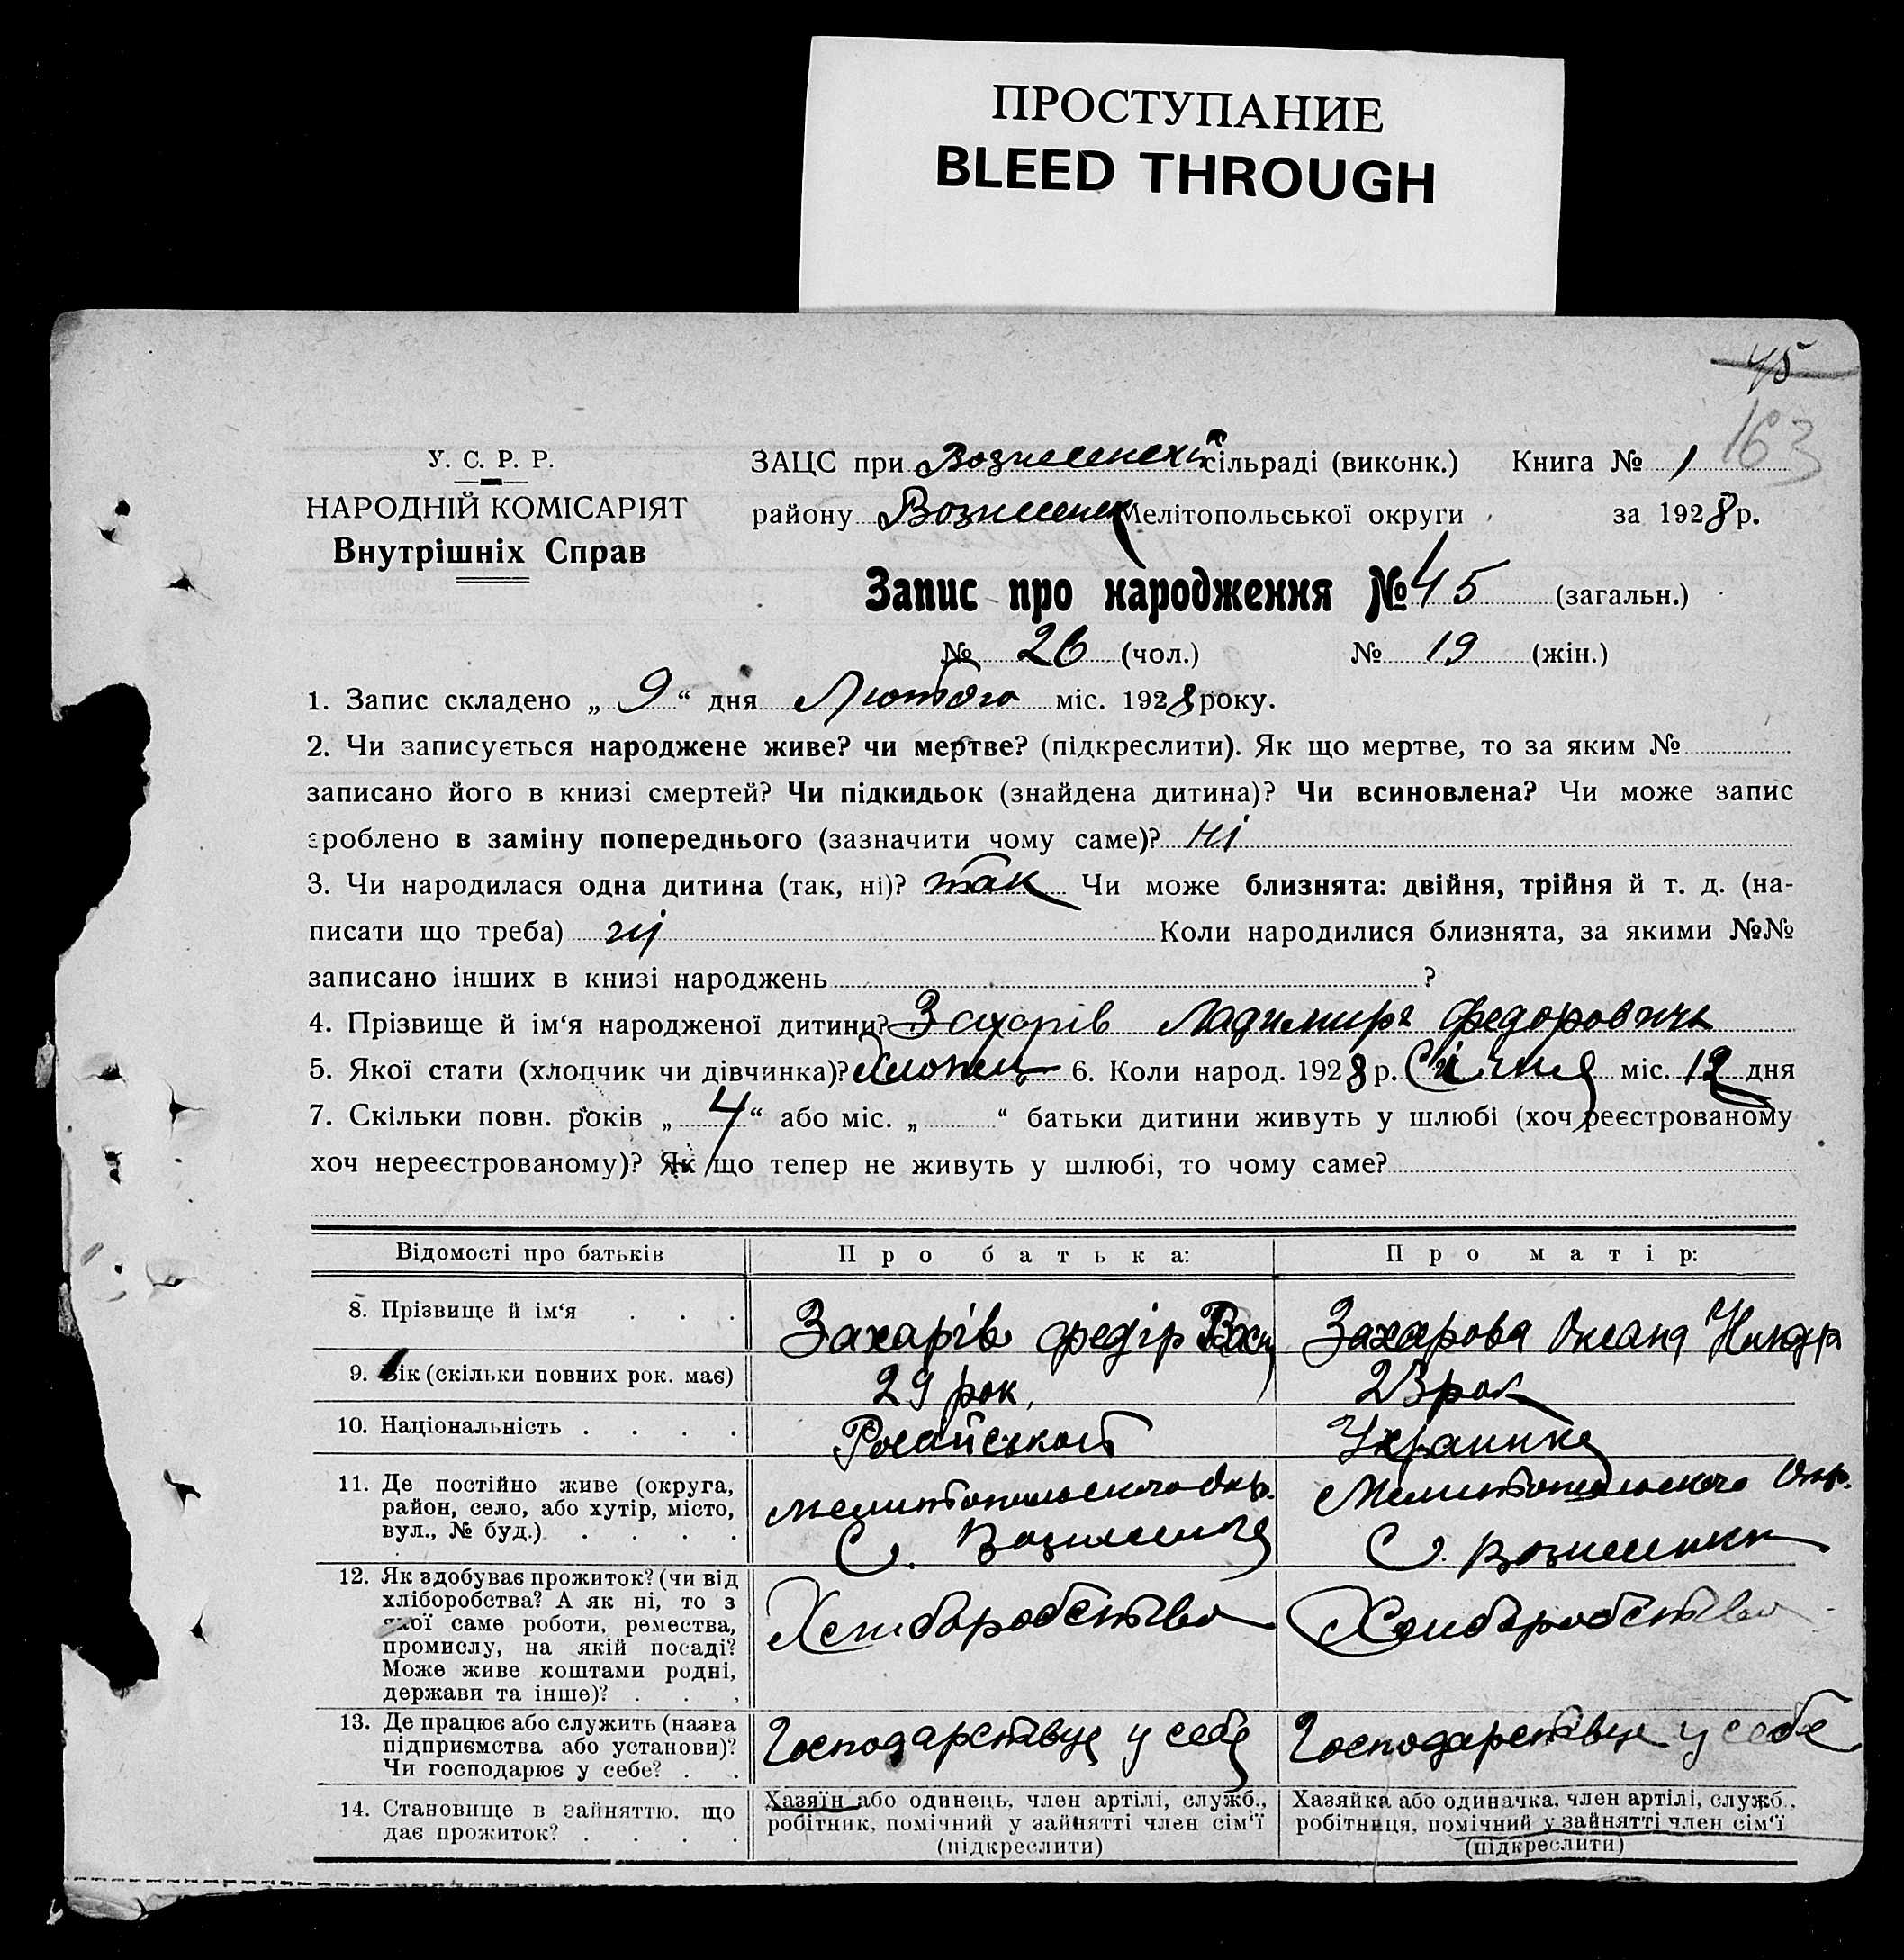 ПРОСТУПАНИЕ
BLEED THROUGH
45
163
У. С. Р. Р.
НАРОДНІЙ КОМІСАРІЯТ
Внутрішніх Справ
ЗАЦС при сільраді (виконк.) Книга № 1
району Мелітопольської округи за 1928 р.
Запис про народження № 45 (загальн.)
№ 26 (чол.) № 19 (жін.)
1. Запис складено „ 9 “ дня Лютого міс. 1928 року.
2. Чи записується народжене живе? чи мертве? (підкреслити). Як що мертве, то за яким №
записано його в книзі смертей? Чи підкидьок (знайдена дитина)? Чи всиновлена? Чи може запис
зроблено в заміну попереднього (зазначити чому саме)? Ні
3. Чи народилася одна дитина (так, ні)? так Чи може близнята: двійня, трійня й т. д. (на-
писати що треба) ні Коли народилися близнята, за якими №№
записано інших в книзі народжень ?
4. Прізвище й ім‘я народженої дитини? Захарів Ладимир Федорович
5. Якої стати (хлопчик чи дівчинка)? Хлопец 6. Коли народ. 1928 р. Січня міс. 12 дня
7. Скільки повн. років „ 4 “ або міс. „ “ батьки дитини живуть у шлюбі (хоч реєстрованому
хоч нереєстрованому)? Як що тепер не живуть у шлюбі, то чому саме?
Відомості про батьків Про батька: Про матір:
8. Прізвище й ім‘я . . . Захарів Федір Захарова Оксана
9. Вік (скільки повних рок. має) 29 рок. 23 рок
10. Національність . . . . Українка
11. Де постійно живе (округа,
район, село, або хутір, місто,
вул., № буд.) . . . .
Мелитопольского Окр. Мелитопольского Окр.
С. С.
12. Як здобуває прожиток? (чи від
хліборобства? А як ні, то з
якої саме роботи, ремества,
промислу, на якій посаді?
Може живе коштами родні,
держави та інше)? . . .
Хлиборобство Хлиборобство
13. Де працює або служить (назва
підприємства або установи)?
Чи господарює у себе? . .
Господарствує у себе Господарствує у себе
14. Становище в зайняттю, що
дає прожиток? . . . .
Хазяїн або одинець, член артілі, служб.,
робітник, помічний у зайнятті член сім‘ї
(підкреслити)
Хазяйка або одиначка, член артілі, служб.,
робітниця, помічний у зайнятті член сім‘ї
(підкреслити)